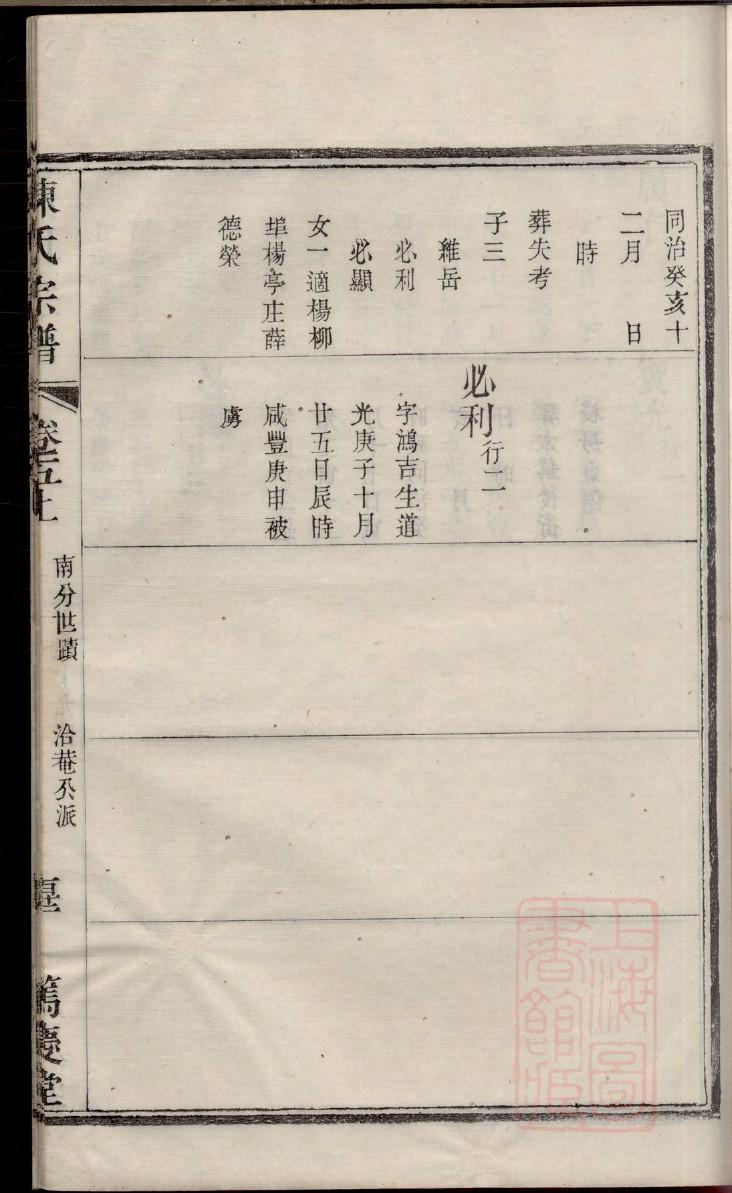 同治癸亥十
二月　日
時
葬失考
子三
維岳
必利
必顯
女一適楊柳
埠楊亭庄薛
德榮
必利行二
字鴻吉生道
光庚子十月
廿五日辰時
咸豐庚申被
虜
陳氏宗譜
卷五上
南分世蹟
洽菴公派
篤慶堂
上海圖
書館藏